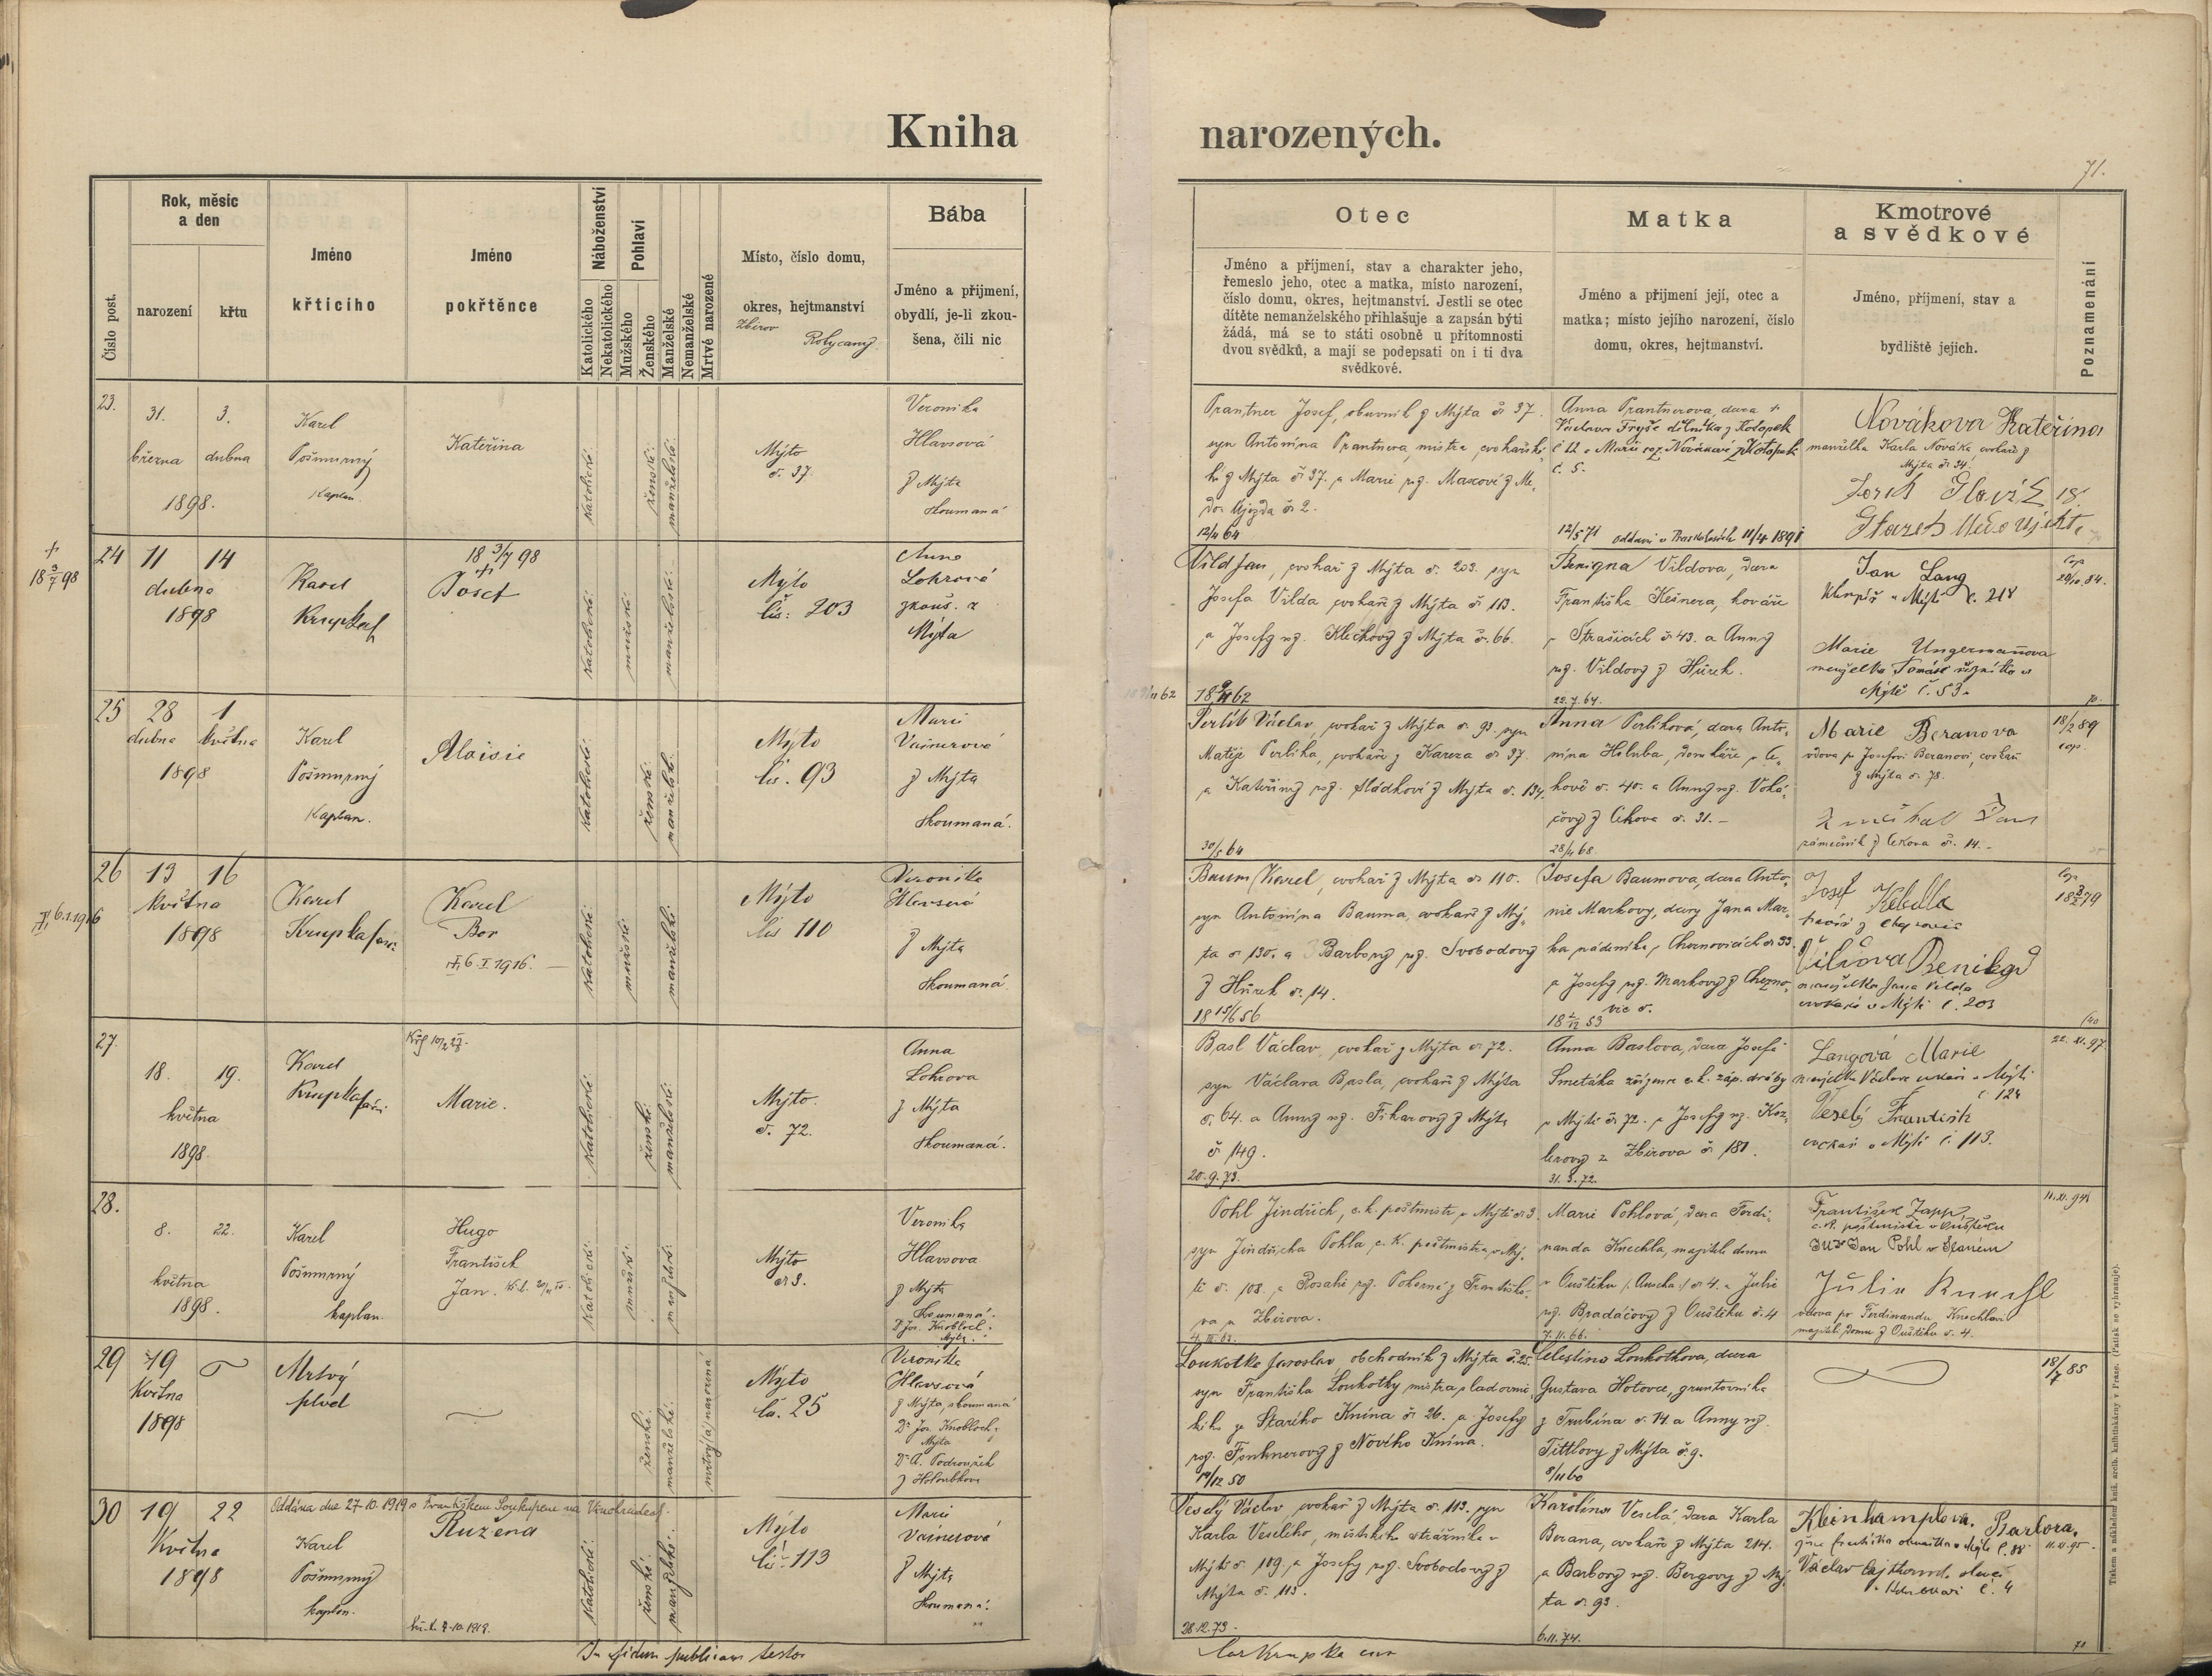 Kniha
narozených.
71.
Číslo post.
Rok, měsíc
a den
narození
křtu
Jméno
křtícího
Jméno
pokřtěnce
Náboženství
Katolického
Nekatolického
Pohlaví
Mužského
Ženského
Manželské
Nemanželské
Mrtvé narozené
Místo, číslo domu,
okres, hejtmanství
Zbirov
Rokycany
Bába
Jméno a příjmení,
obydlí, je-li zkou-
šena, čili nic
Otec
Jméno a příjmení, stav a charakter jeho,
řemeslo jeho, otec a matka, místo narození,
číslo domu, okres, hejtmanství. Jestli se otec
dítěte nemanželského přihlašuje a zapsán býti
žádá, má se to státi osobně u přítomnosti
dvou svědků, a mají se podepsati on i ti dva
svědkové.
Matka
Jméno a příjmení její, otec a
matka; místo jejího narození, číslo
domu, okres, hejtmanství.
Kmotrové
a svědkové
Jméno, příjmení, stav a
bydliště jejich.
Poznamenání
23.
31.
března
1898.
3.
dubna
Karel
Pošmurný
kaplan.
Kateřina
katolické
ženské
manželské
Mýto
č. 37.
Veronika
Hlavsová
z Mýta
zkoumaná
Prantner Josef, obuvník z Mýta č. 37.
syn Antonína Prantnera, mistra cvokařské-
ho z Mýta č. 37. a Marie roz.
Újezda č. 2.
12/4 64
Anna Prantnerova, dcera +
Václava Fryše dělníka z Kotopek
č 12 a Marie roz. Novákové z Kotopek
č. 5.
12/5 71 11/4 1891
Novákova Kateřina
manželka Karla Nováka cvokaře z
Mýta č. 34.
24
11
dubna
1898
14
+
18 3/7 98
Karel
Krupka
18 3/7 98
+
Josef
katolické
mužské
manželské
Mýto
čís: 203
Anna
Lohrová
zkouš. z
Mýta
Vild Jan, cvokař z Mýta č. 203. syn
Josefa Vilda cvokaře z Mýta č. 113.
a Josefy roz. Klečkovy z Mýta č. 66.
18 9/11 62
Benigna Vildova, dcera
Františka Kešnera, kováře
v Strašicích č. 43. a Anny
roz. Vildovy z Hůrek.
22.7.64.
Jan Lang
klempíř v Mýtě č. 218
Marie Ungermannova
manželka Tomáše řezníka v
Mýtě č. 53.
25
28
dubna
1898
1
května
Karel
Pošmurný
kaplan.
Aloisie
katolické
ženské
manželské
Mýto
čís. 93
Marie
Vainerová
z Mýta
zkoumaná.
Perlík Václav, cvokař z Mýta č. 93. syn
Matěje Perlíka, cvokaře z Kařeza č. 37.
a Kateřiny roz. Sládkové z Mýta č. 134.
30/5 64
Anna Perlíková, dcera Anto-
nína Holuba, domkáře v Ce-
kově č. 40. a Anny roz. Voká-
čovy z Cekova č. 31. –
28/4 68.
Marie Beranova
vdova po Josefovi Beranovi, cvokaři
z Mýta č. 78.
zámečník z Cekova č. 14. –
18/2 89
cop.
26
13
května
1898
16
6.1.1916
Karel
Krupka
Karel
Bor
6. I. 1916. –
katolické
mužské
manželské
Mýto
čís 110
Veronika
Hlavsová
z Mýta
zkoumaná.
Baum Karel, cvokař z Mýta č. 110.
syn Antonína Bauma, cvokaře z Mý-
ta č. 130. a Barbory roz. Svobodovy
z Hůrek č. 14.
18 15/6 56
Josefa Baumova, dcera Anto-
nie Markovy, dcery Jana Mar-
ka nádeníka v Cheznovicích č. 33.
a Josefy roz. Markovy z Chezno-
vic č.
Josef Kebrlla
z Cheznovic
Vildova Benigna
manželka Jana Vilda
cvokaře v Mýtě č. 203
27.
18.
května
1898.
19.
Karel
Krupka
Marie.
katolické
ženské
manželské
Mýto.
č. 72.
Anna
Lohrova
z Mýta
zkoumaná.
Basl Václav, cvokař z Mýta č. 72.
syn Václava Basla, cvokaře z Mýta
č. 64. a Anny roz. Fikarovy z Mýta
č 149.
20.9.73.
Anna Baslova, dcera Josefa
Smetáka zřízence c. k. záp. dráhy
v Mýtě č. 72. a Josefy roz. Koz-
lerovy z Zbirova č. 181.
31.3.72.
Langová Marie
manželka Václava cvokaře v Mýtě
č. 124
Veselý František
cvokař v Mýtě č. 113.
22. XI. 97.
28.
8.
května
1898.
22.
Karel
Pošmurný
kaplan.
Hugo
František
Jan.
katolické
mužské
manželské
Mýto
č. 3.
Veronika
Hlavsova
z Mýta
zkoumaná.
Dr Jos. Knobloch.
Mýto.
Pohl Jindřich, c. k. poštmistr v Mýtě č. 3.
syn Jindřicha Pohla, c. k. poštmistra v Mý-
tě č. 108. a Rosalie roz. Pokorné z Františko-
va u Zbirova.
Marie Pohlová, dcera Ferdi-
nanda Knechla, majitele domu
v Ouštěku /Auscha/ č. 4. a Julie
roz. Bradáčovy z Ouštěku č. 4
7. 11. 66.
František Zapp,
c.k. poštmistr v Ouštěku
JUDr Jan Pohl v Slaném
Julie Knechl
vdova po Ferdinandu Knechlovi
majitel. domu z Ouštěku č. 4.
11. XI. 94
29
19
května
1898
Mrtvý
plod
ženské
manželské
mrtvý(á) narozená
Mýto
čís. 25
Veronika
Hlavsová
z Mýta, zkoumaná
Dr Jos. Knobloch,
Mýta
Dr A. Podroužek
z Holoubkova
Loukotka Jaroslav, obchodník z Mýta č. 25.
syn Františka Loukotky mistra sladovnic-
kého ze Starého Knína č. 26. a Josefy
roz. z Nového Knína.
19/12 50
Celestina Loukotkova, dcera
Gustava Hotovce, gruntovníka
z Trubína č. 14 a Anny roz.
Tittlovy z Mýta č. 9.
8/11 60
18/7 85
30
19
května
1898
22
Oddána dne 27.10.1919 s Františkem Soukupem na Vinohradech.
Karel
Pošmurný
kaplan.
Růžena
katolické
ženské
manželské
Mýto
čís. 113
Marie
Vainerová
z Mýta
zkoumaná.
Veselý Václav, cvokař z Mýta č. 113. syn
Karla Veselého, městského strážníka v
Mýtě č. 119. a Josefy roz. Svobodovy z
Mýta č. 113.
28.12.73.
Karolina Veselá, dcera Karla
Berana, cvokaře z Mýta 214.
a Barbory roz. Bergovy z Mý-
ta č. 93.
6.11.74.
Kleinhamplova Barbora,
žena Františka obuvníka v Mýtě č. 88
11.XI.95.
Václav
č. 4
In fidem publicam testor
Car Krupka
Tiskem a nákladem kníž. arcib. knihtiskárny v Praze. (Patisk se vyhrazuje).